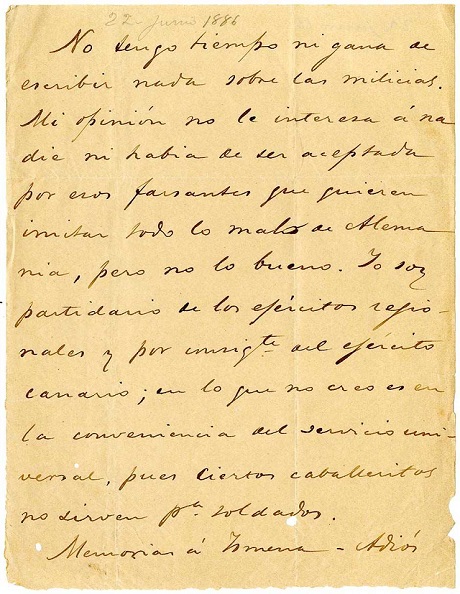 22 Junio 1886
No tengo tiempo ni gana de
escribir nada sobre las milicias.
Mi opinión no le interesa á na
die ni habia de ser aceptada
por esos farsantes que quieren
imitar todo lo malo de Alema
nia, pero no lo bueno. Yo soy
partidario de los ejércitos regio-
nales y por consigte. del ejército
canario; en lo que no creo es en
la conveniencia del servicio uni-
versal, pues ciertos caballeritos
no sirven pa. soldados.
Memorias á Ismena - Adiós